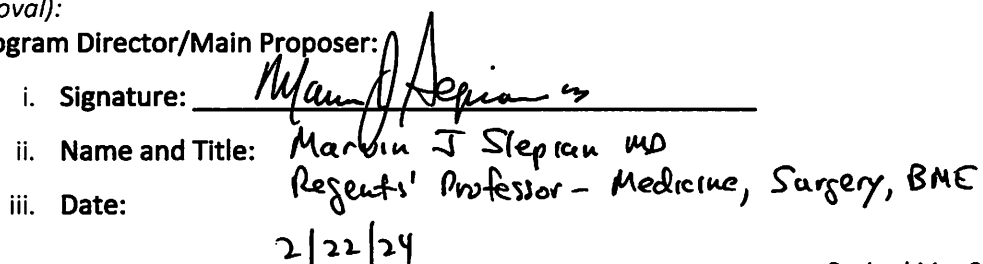 oval):
ogram Director/Main Proposer:
i. Signature: Marvin J Slepian MD
ii. Name and Title: Marvin J Slepian MD
Regents' Professor – Medicine, Surgery, BME
iii. Date:
2/22/24